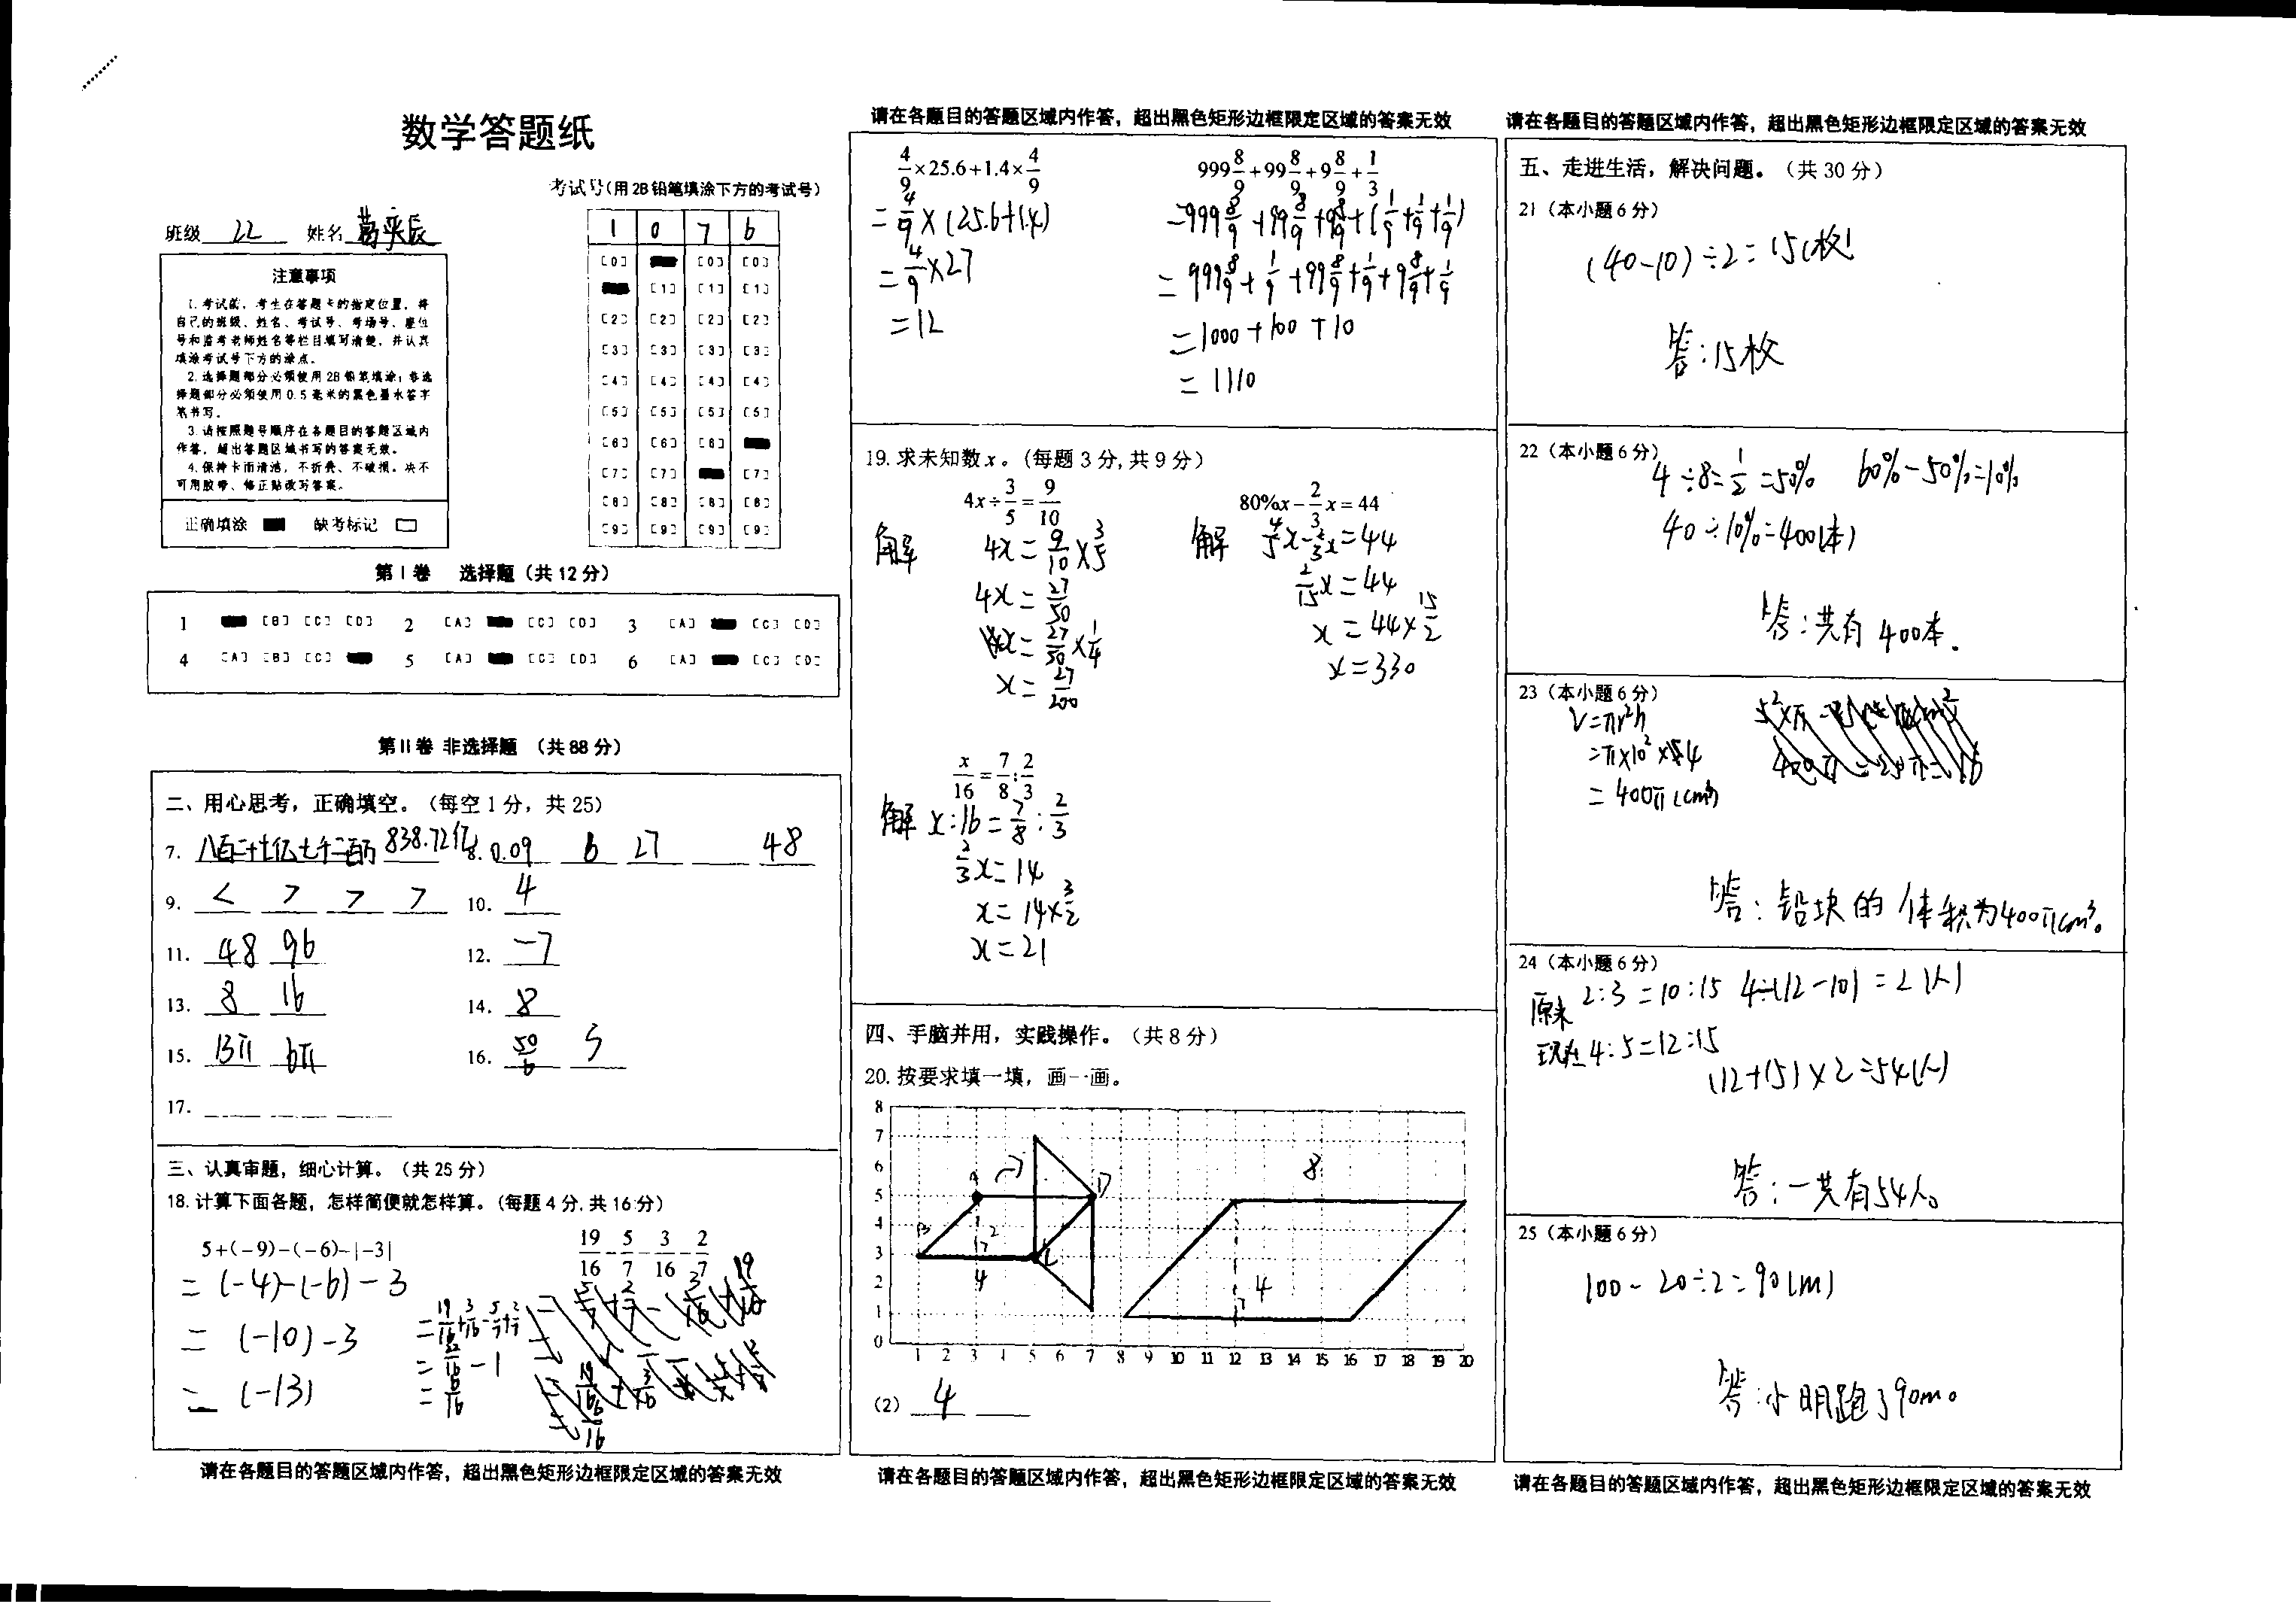 数学答题纸
考试号(用2B铅笔填涂下方的考试号)
班级 22 姓名
1 0 7 6
注意事项
1.考试前，考生在答题卡的指定位置，将
自己的班级、姓名、考试号、考场号、座位
号和监考老师姓名等栏目填写清楚，并认真
填涂考试号下方的涂点。
2.选择题部分必须使用2B铅笔填涂；非选
择题部分必须使用0.5毫米的黑色墨水签字
笔书写。
3.请按照题号顺序在各题目的答题区域内
作答，超出答题区域书写的答案无效。
4.保持卡面清洁，不折叠、不破损。决不
可用胶带、修正贴改写答案。
正确填涂 缺考标记
[0] [0] [0]
[1] [1] [1]
[2] [2] [2] [2]
[3] [3] [3] [3]
[4] [4] [4] [4]
[5] [5] [5] [5]
[6] [6] [6]
[7] [7] [7]
[8] [8] [8] [8]
[9] [9] [9] [9]
第I卷 选择题（共12分）
1 [B] [C] [D] 2 [A] [C] [D] 3 [A] [C] [D]
4 [A] [B] [C] 5 [A] [C] [D] 6 [A] [C] [D]
第II卷 非选择题 （共88分）
二、用心思考，正确填空。（每空1分，共25）
7. 838.72亿 8. 0.09 6 27 48
9. < > > > 10. 4
11. 48 96 12. -7
13. 8 16 14. 8
15. 13π 6π 16. 50/6 5
17.
三、认真审题，细心计算。（共25分）
18.计算下面各题，怎样简便就怎样算。（每题4分,共16分）
5+(-9)-(-6)-|-3|
= (-4)-(-6)-3
= (-10)-3
= (-13)
19/16-5/7-3/16-2/7
=19/16+3/16-5/7+2/7
=22/16-1
=6/16
请在各题目的答题区域内作答，超出黑色矩形边框限定区域的答案无效
请在各题目的答题区域内作答，超出黑色矩形边框限定区域的答案无效
4/9×25.6+1.4×4/9
=4/9×(25.6+1.4)
=4/9×27
=12
999 8/9+99 8/9+9 8/9+1/3
=999 8/9+99 8/9+9 8/9+(1/9+1/9+1/9)
=999 8/9+1/9+99 8/9+1/9+9 8/9+1/9
=1000+100+10
=1110
19.求未知数x。（每题3分,共9分）
4x÷3/5=9/10
解 4x=9/10×3/5
4x=27/50
x=27/50×1/4
x=27/200
80%x-2/3x=44
解 4/5x-2/3x=44
2/15x=44
x=44×15/2
x=330
x/16=7/8:2/3
解 x:16=7/8:2/3
2/3x=14
x=14×3/2
x=21
四、手脑并用，实践操作。（共8分）
20.按要求填一填，画一画。
8
7
6
5
4
3
2
1
0
1 2 3 4 5 6 7 8 9 10 11 12 13 14 15 16 17 18 19 20
A B D 2 4 8 4
（2） 4
请在各题目的答题区域内作答，超出黑色矩形边框限定区域的答案无效
请在各题目的答题区域内作答，超出黑色矩形边框限定区域的答案无效
五、走进生活，解决问题。（共30分）
21（本小题6分）
(40-10)÷2=15(枚)
答:15枚
22（本小题6分）
4÷8=1/2=50% 60%-50%=10%
40÷10%=400(本)
答:共有400本.
23（本小题6分）
V=πr²h
=π×10²×4
=400π(cm³)
答:铅块的体积为400πcm³。
24（本小题6分）
原来 2:3=10:15 4÷(12-10)=2(人)
现在 4:5=12:15
(12+15)×2=54(人)
答:一共有54人。
25（本小题6分）
100-20÷2=90(m)
答:小明跑了90m。
请在各题目的答题区域内作答，超出黑色矩形边框限定区域的答案无效